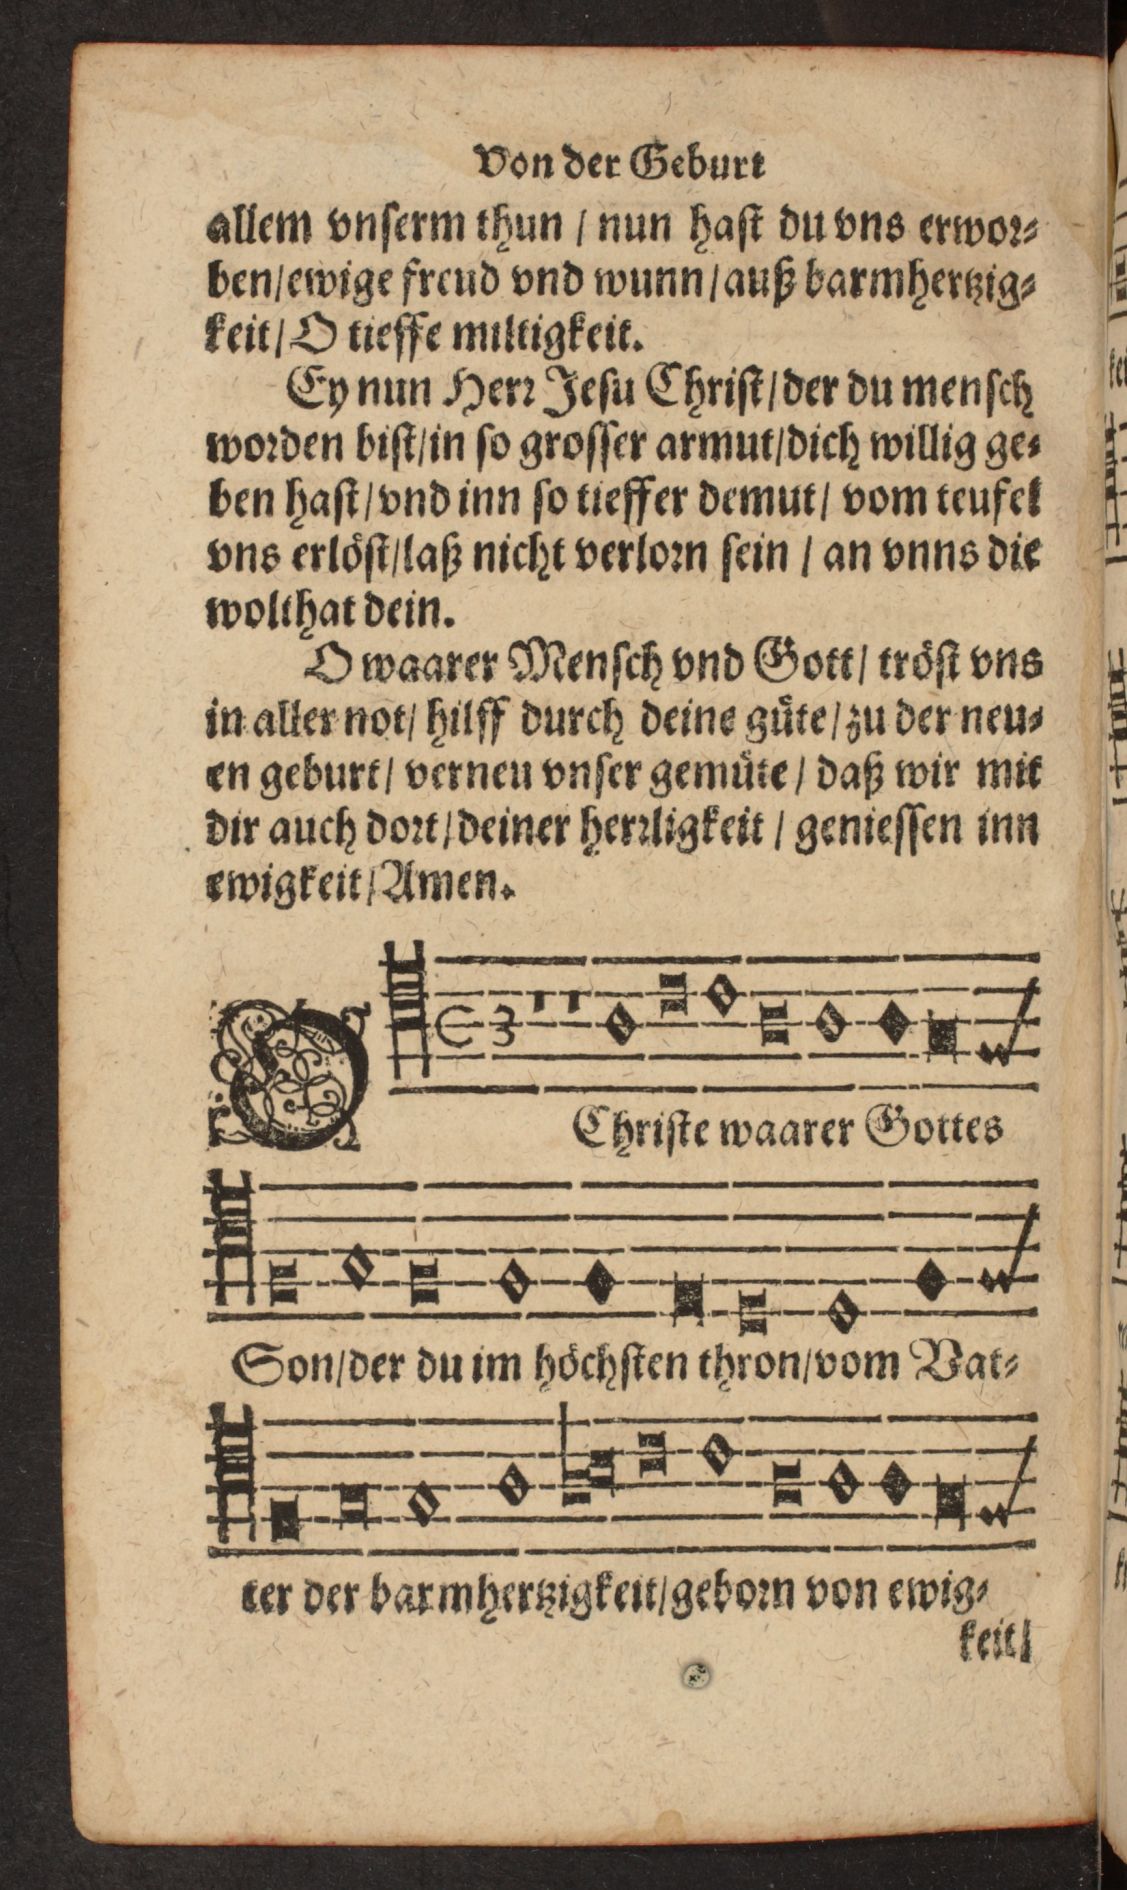 Von der Geburt
allem vnserm thun / nun hast du vns erwor⸗
ben/ewige freud vnd wunn/auß barmhertzig⸗
keit/O tieffe miltigkeit.
Ey nun Herr Jesu Christ/der du mensch
worden bist/in so grosser armut/dich willig ge⸗
ben hast/vnd inn so tieffer demut/ vom teufel
vns erlöst/laß nicht verlorn sein / an vnns die
wolthat dein.
O waarer Mensch vnd Gott/ tröst vns
in aller not/ hilff durch deine güte/zu der neu⸗
en geburt/ verneu vnser gemüte/ daß wir mit
dir auch dort/deiner herrligkeit / geniessen inn
ewigkeit/Amen.
O
Christe waarer Gottes
Son/der du im höchsten thron/vom Vat⸗
ter der barmhertzigkeit/geborn von ewig⸗
keit/